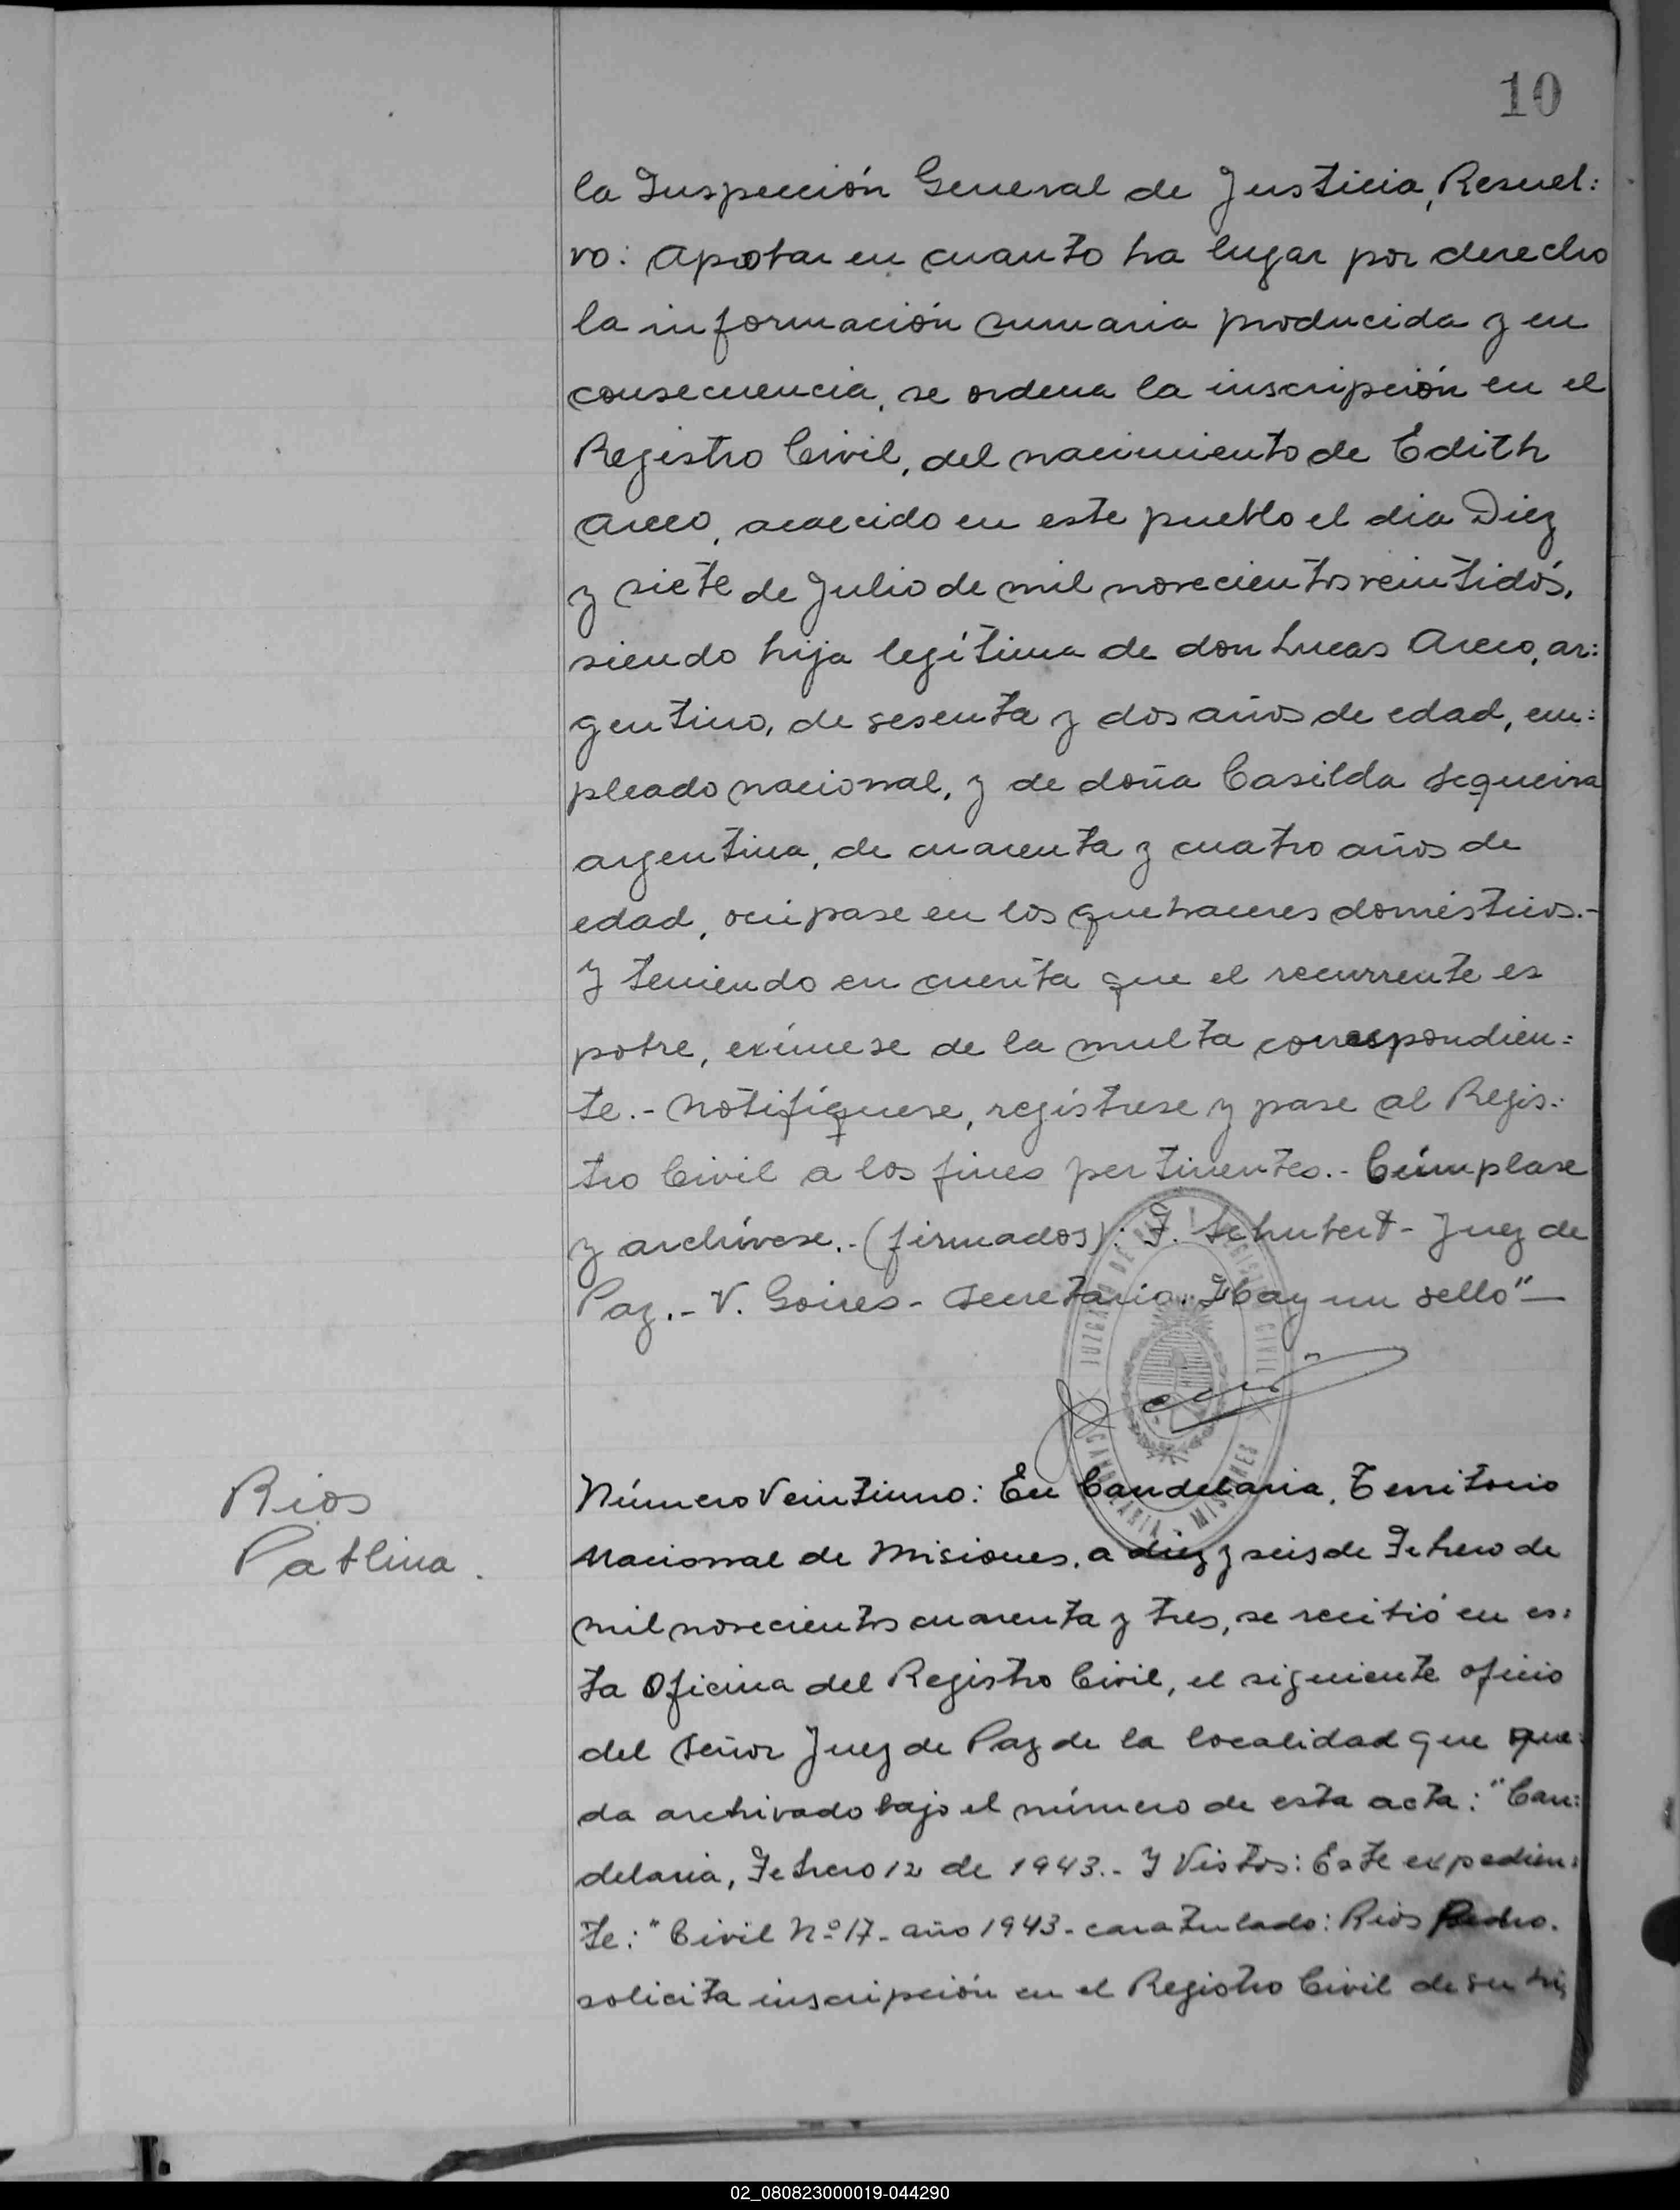 10
la Inspección General de Justicia, Resuel:
vo: Aprobar en cuanto ha lugar por derecho
la información sumaria producida y en
consecuencia, se ordena la inscripción en el
Registro Civil, del nacimiento de Edith
Areco, acaecido en este pueblo el dia Diez
y siete de Julio de mil novecientos veintidós,
siendo hija legítima de don Lucas Areco, ar:
gentino, de sesenta y dos años de edad, em:
pleado nacional, y de doña Casilda Sequeira
argentina, de cuarenta y cuatro años de
edad, ocúpase en los quehaceres domésticos.-
Y teniendo en cuenta que el recurrente es
pobre, exímese de la multa correspondien:
te.- Notifíquese, regístrese y pase al Regis:
tro Civil a los fines pertinentes.- Cúmplase
y archívese.- (firmados): F. Schubert - Juez de
Paz.- V. Goires - Secretario. Hay un sello"—
JUZGADO DE PAZ Y REGISTRO CIVIL
CANDELARIA - MISIONES
Rios
Número Veintiuno: En Candelaria, Territorio
Nacional de Misiones, a diez y seis de Febrero de
mil novecientos cuarenta y tres, se recibió en es:
ta Oficina del Registro Civil, el siguiente oficio
del Señor Juez de Paz de la localidad que que:
da archivado bajo el número de esta acta: "Can:
delaria, Febrero 12 de 1943.- Y Vistos: Este expedien:
te: "Civil Nº 17- año 1943- caratulado: Rios Pedro.
solicita inscripción en el Registro Civil de su hi
02_080823000019-044290